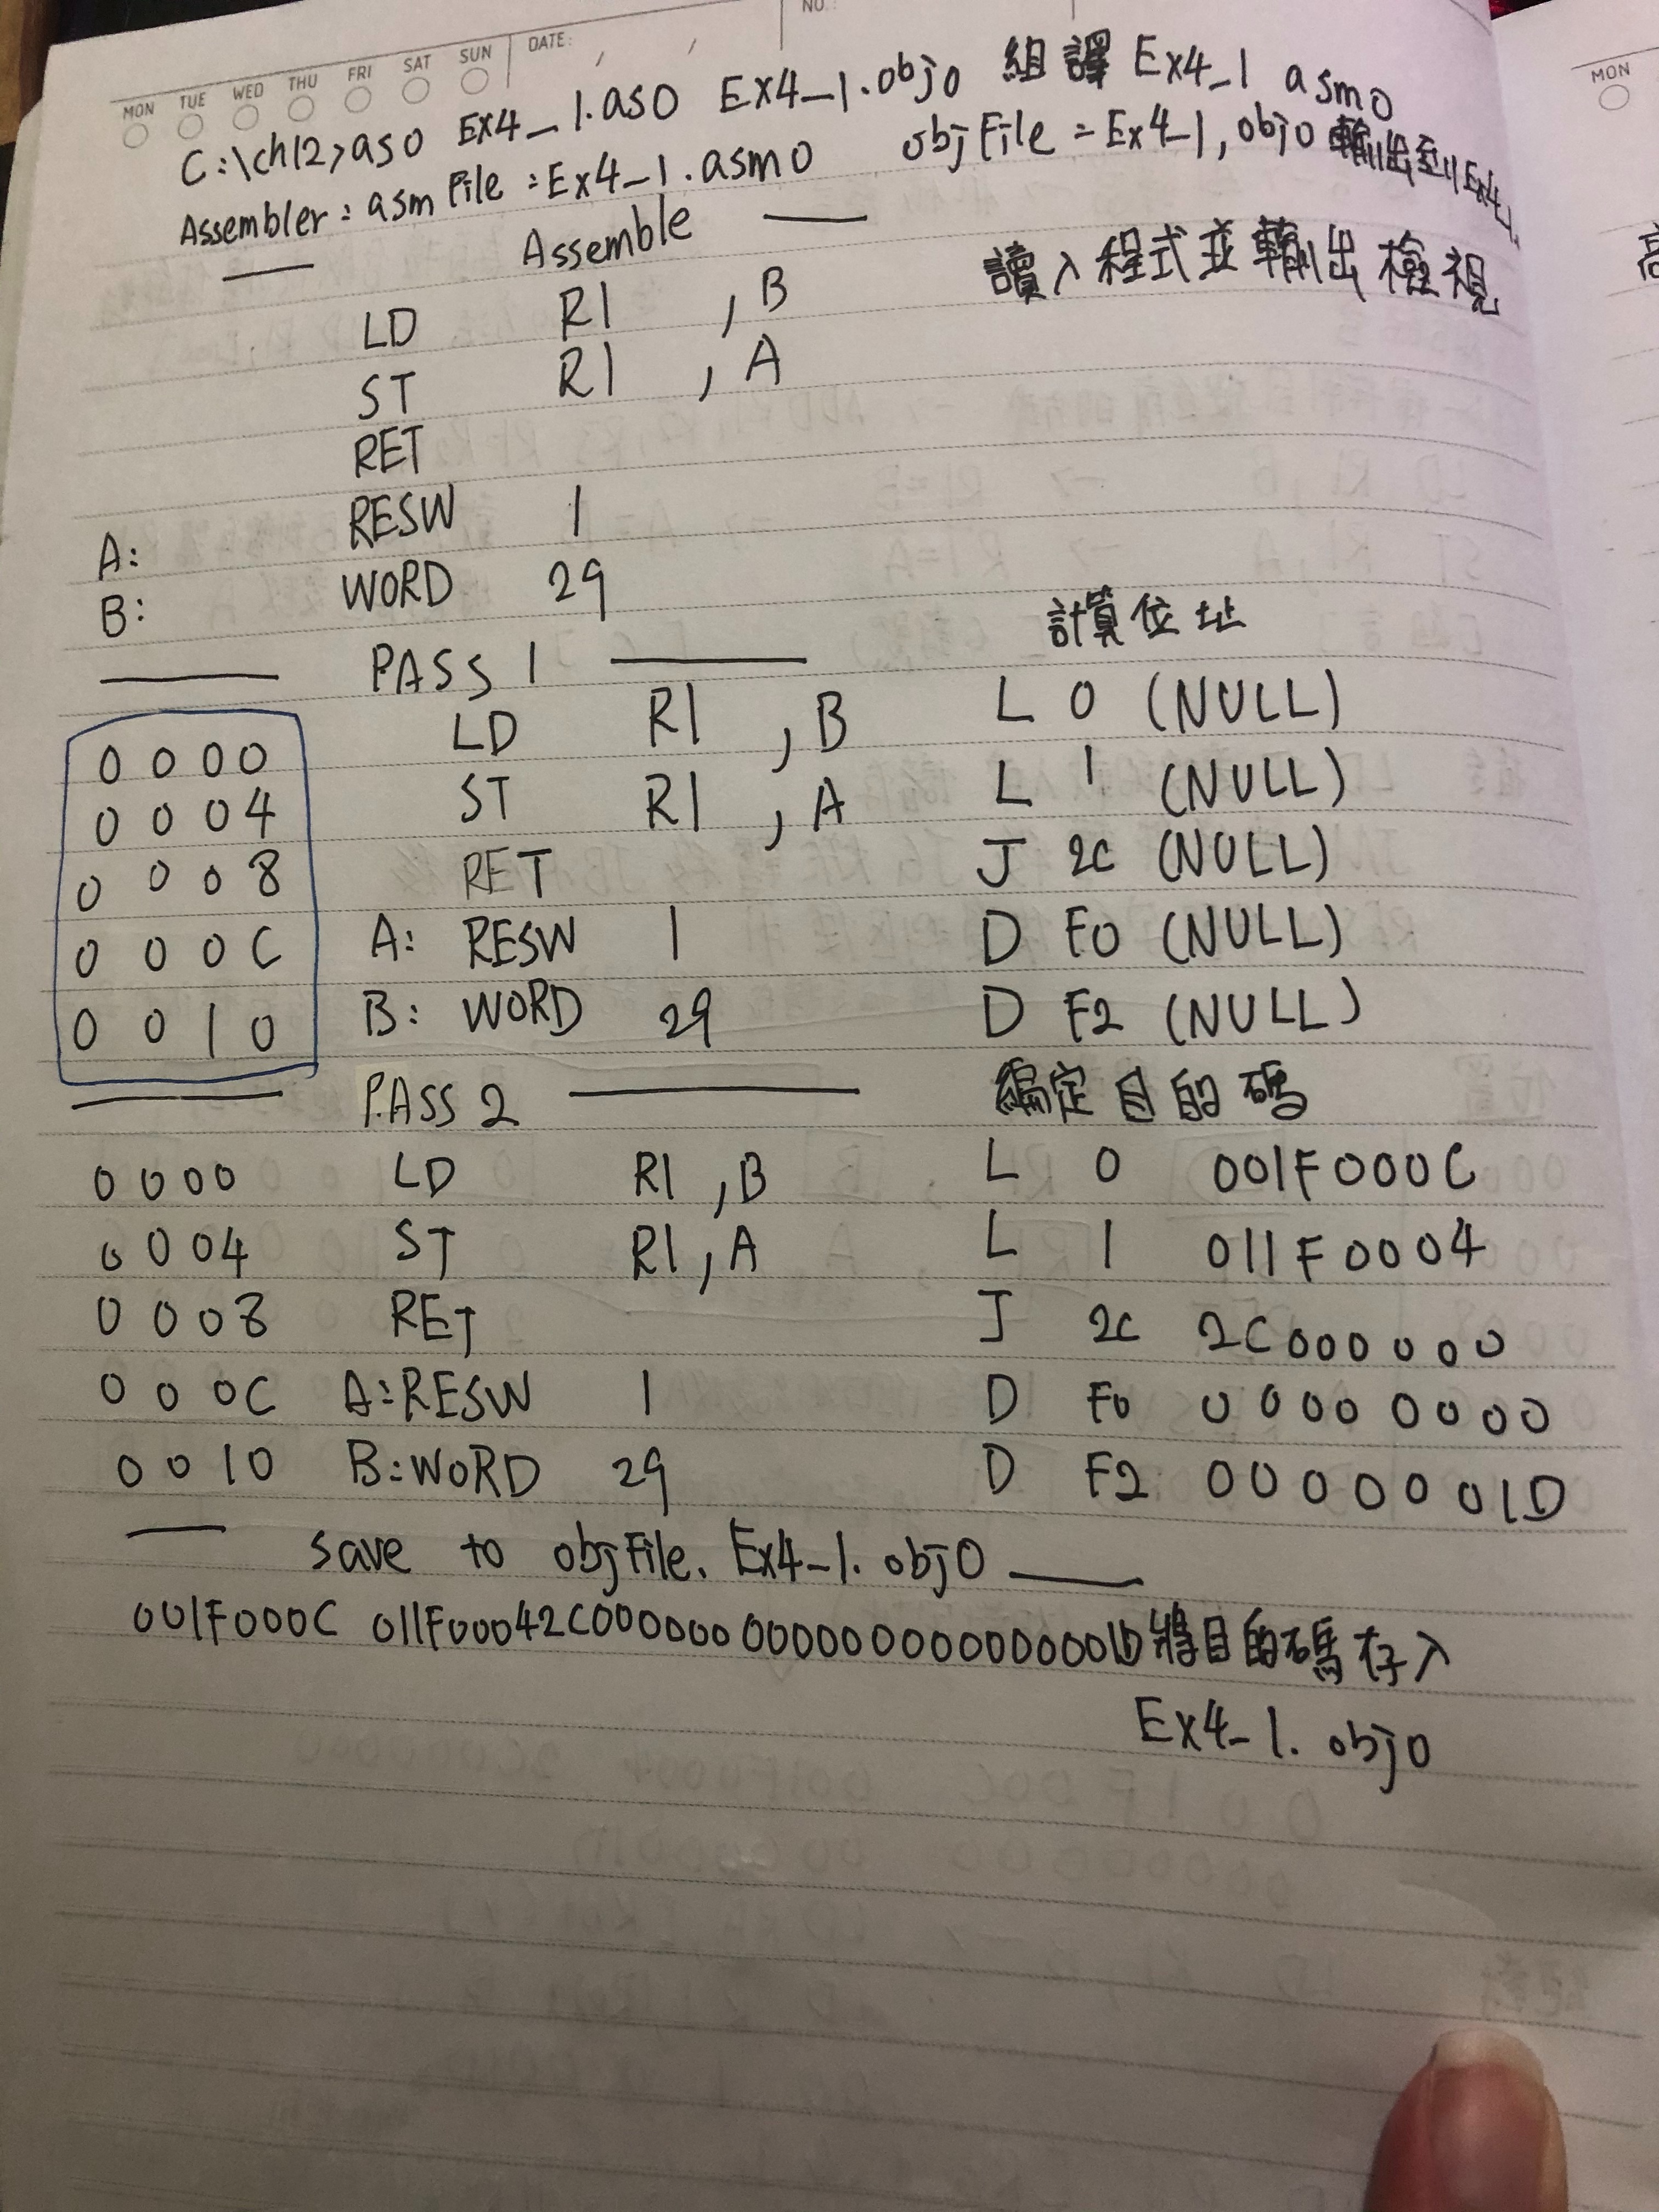 NO.:
MON TUE WED THU FRI SAT SUN DATE: / /
MON
C:\ch12>as0 EX4_1.as0 EX4_1.obj0 組譯 Ex4_1 asm0
Assembler = asm File = Ex4_1.asm0 objFile = Ex4_1, obj0 輸出至
Assemble
LD R1 , B 讀入程式並輸出檢視
ST R1 , A
RET
A: RESW 1
B: WORD 29
PASS 1 計算位址
0000 LD R1 , B L 0 (NULL)
0004 ST R1 , A L 1 (NULL)
0008 RET J 2C (NULL)
000C A: RESW 1 D F0 (NULL)
0010 B: WORD 29 D F2 (NULL)
PASS 2 編定目的碼
0000 LD R1 , B L 0 001F000C
0004 ST R1 , A L 1 011F0004
0008 RET J 2C 2C000000
000C A:RESW 1 D F0 00000000
0010 B:WORD 29 D F2 0000001D
save to objFile. Ex4_1. obj0
001F000C 011F00042C000000 將目的碼存入
Ex4_1. obj0